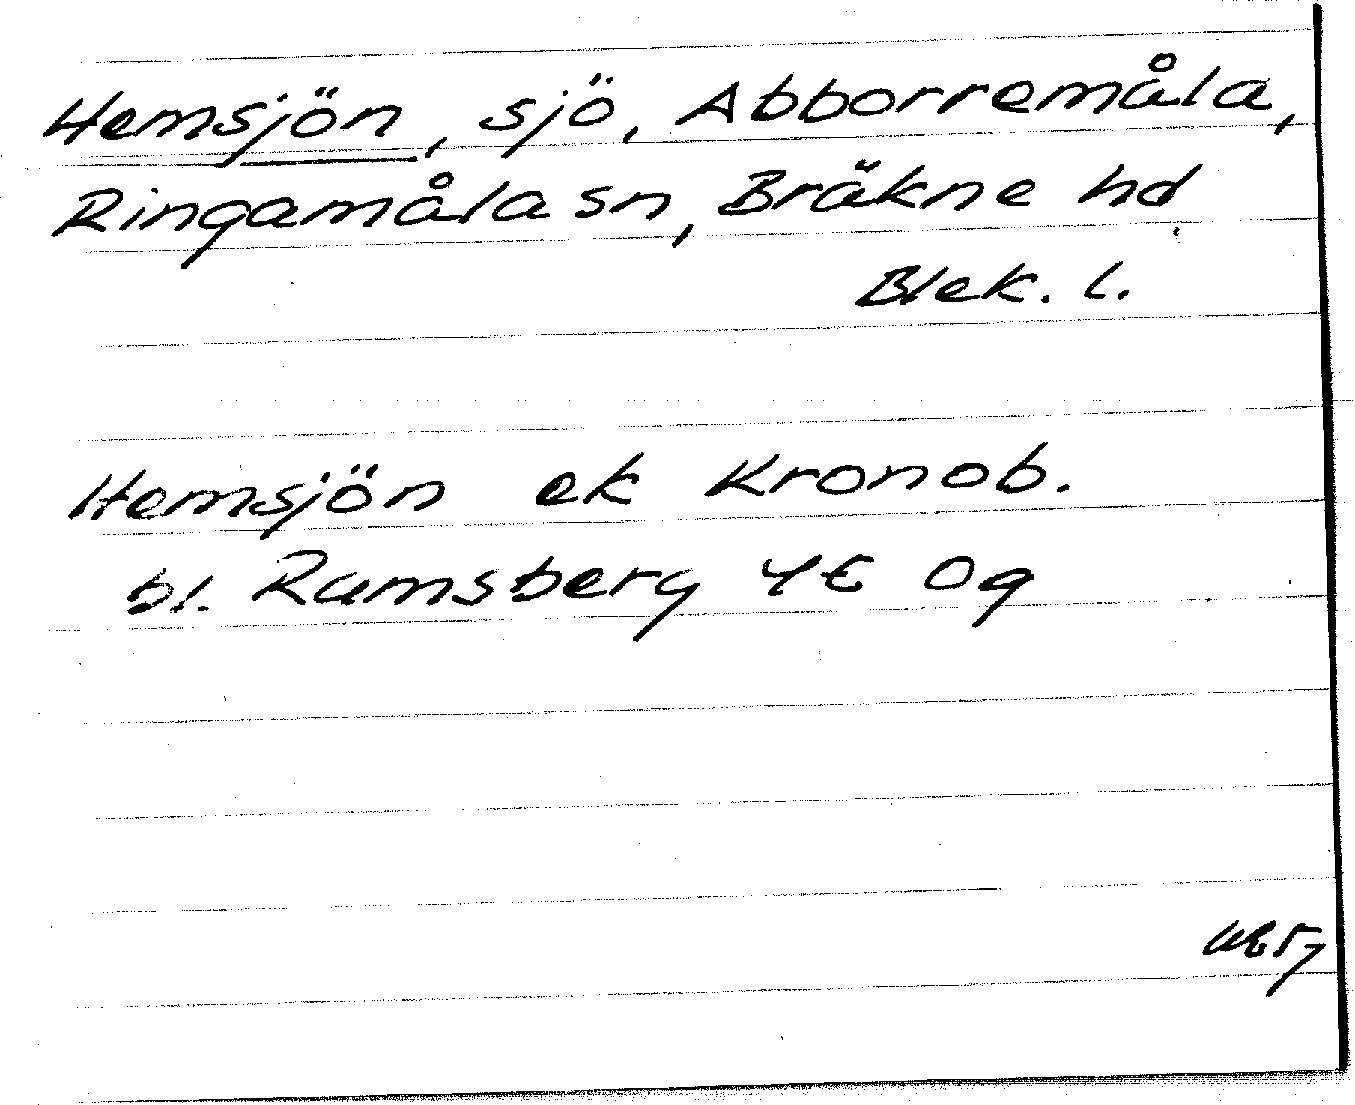 Hemsjön, sjö, Abborremåla,
Ringamåla sn, Bräkne hd
Blek. l.
Hemsjön ek Kronob.
bl. Ramsberg 4E Og